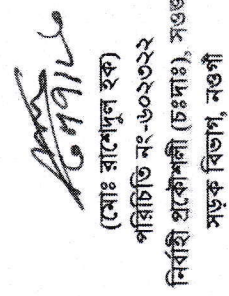 (মোঃ রাশেদুল হক)
পরিচিতি নং-৬০২৩২২
নির্বাহী প্রকৌশলী (চঃদাঃ), সওজ
সড়ক বিভাগ, নওগাঁ